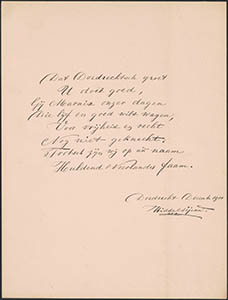 Dat Dordrechtsch groet
U doet goed,
Gij Marnix onzer dagen
Die lijf en goed wilt wagen,
Voor vrijheid en recht
Nog niet geknecht.
zijn wij op uw naam
Huldend Neerlandes faam.
Dordrecht